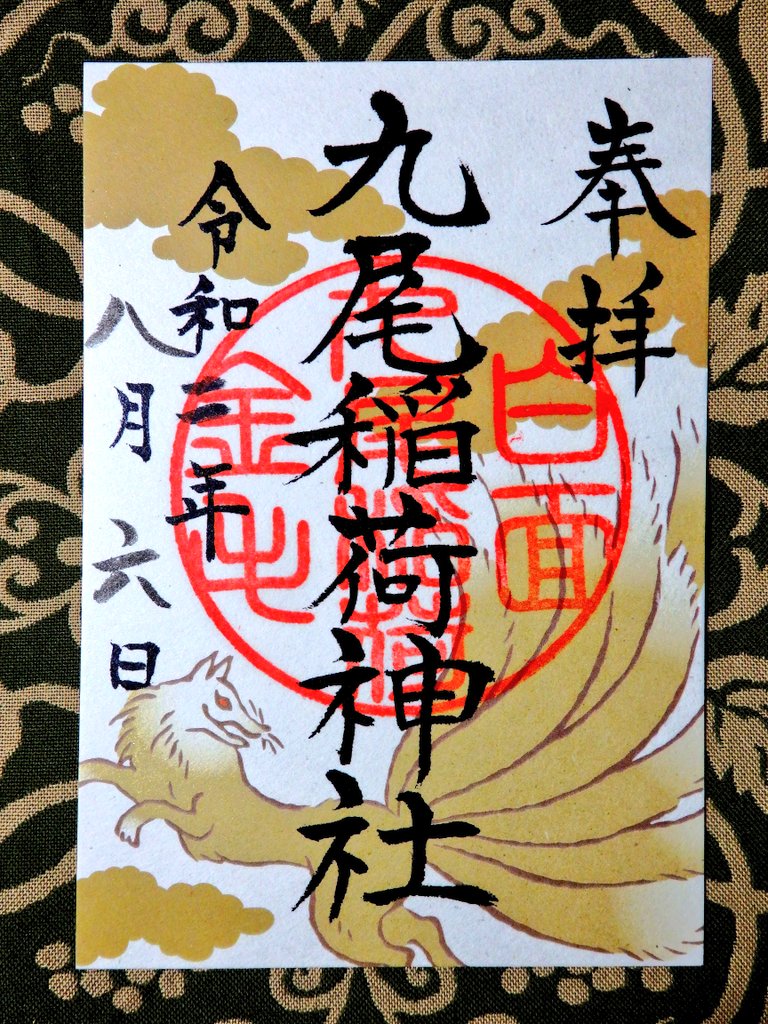 奉拝
九尾稲荷神社
令和二年
八月六日
白面
九尾稲荷
金毛